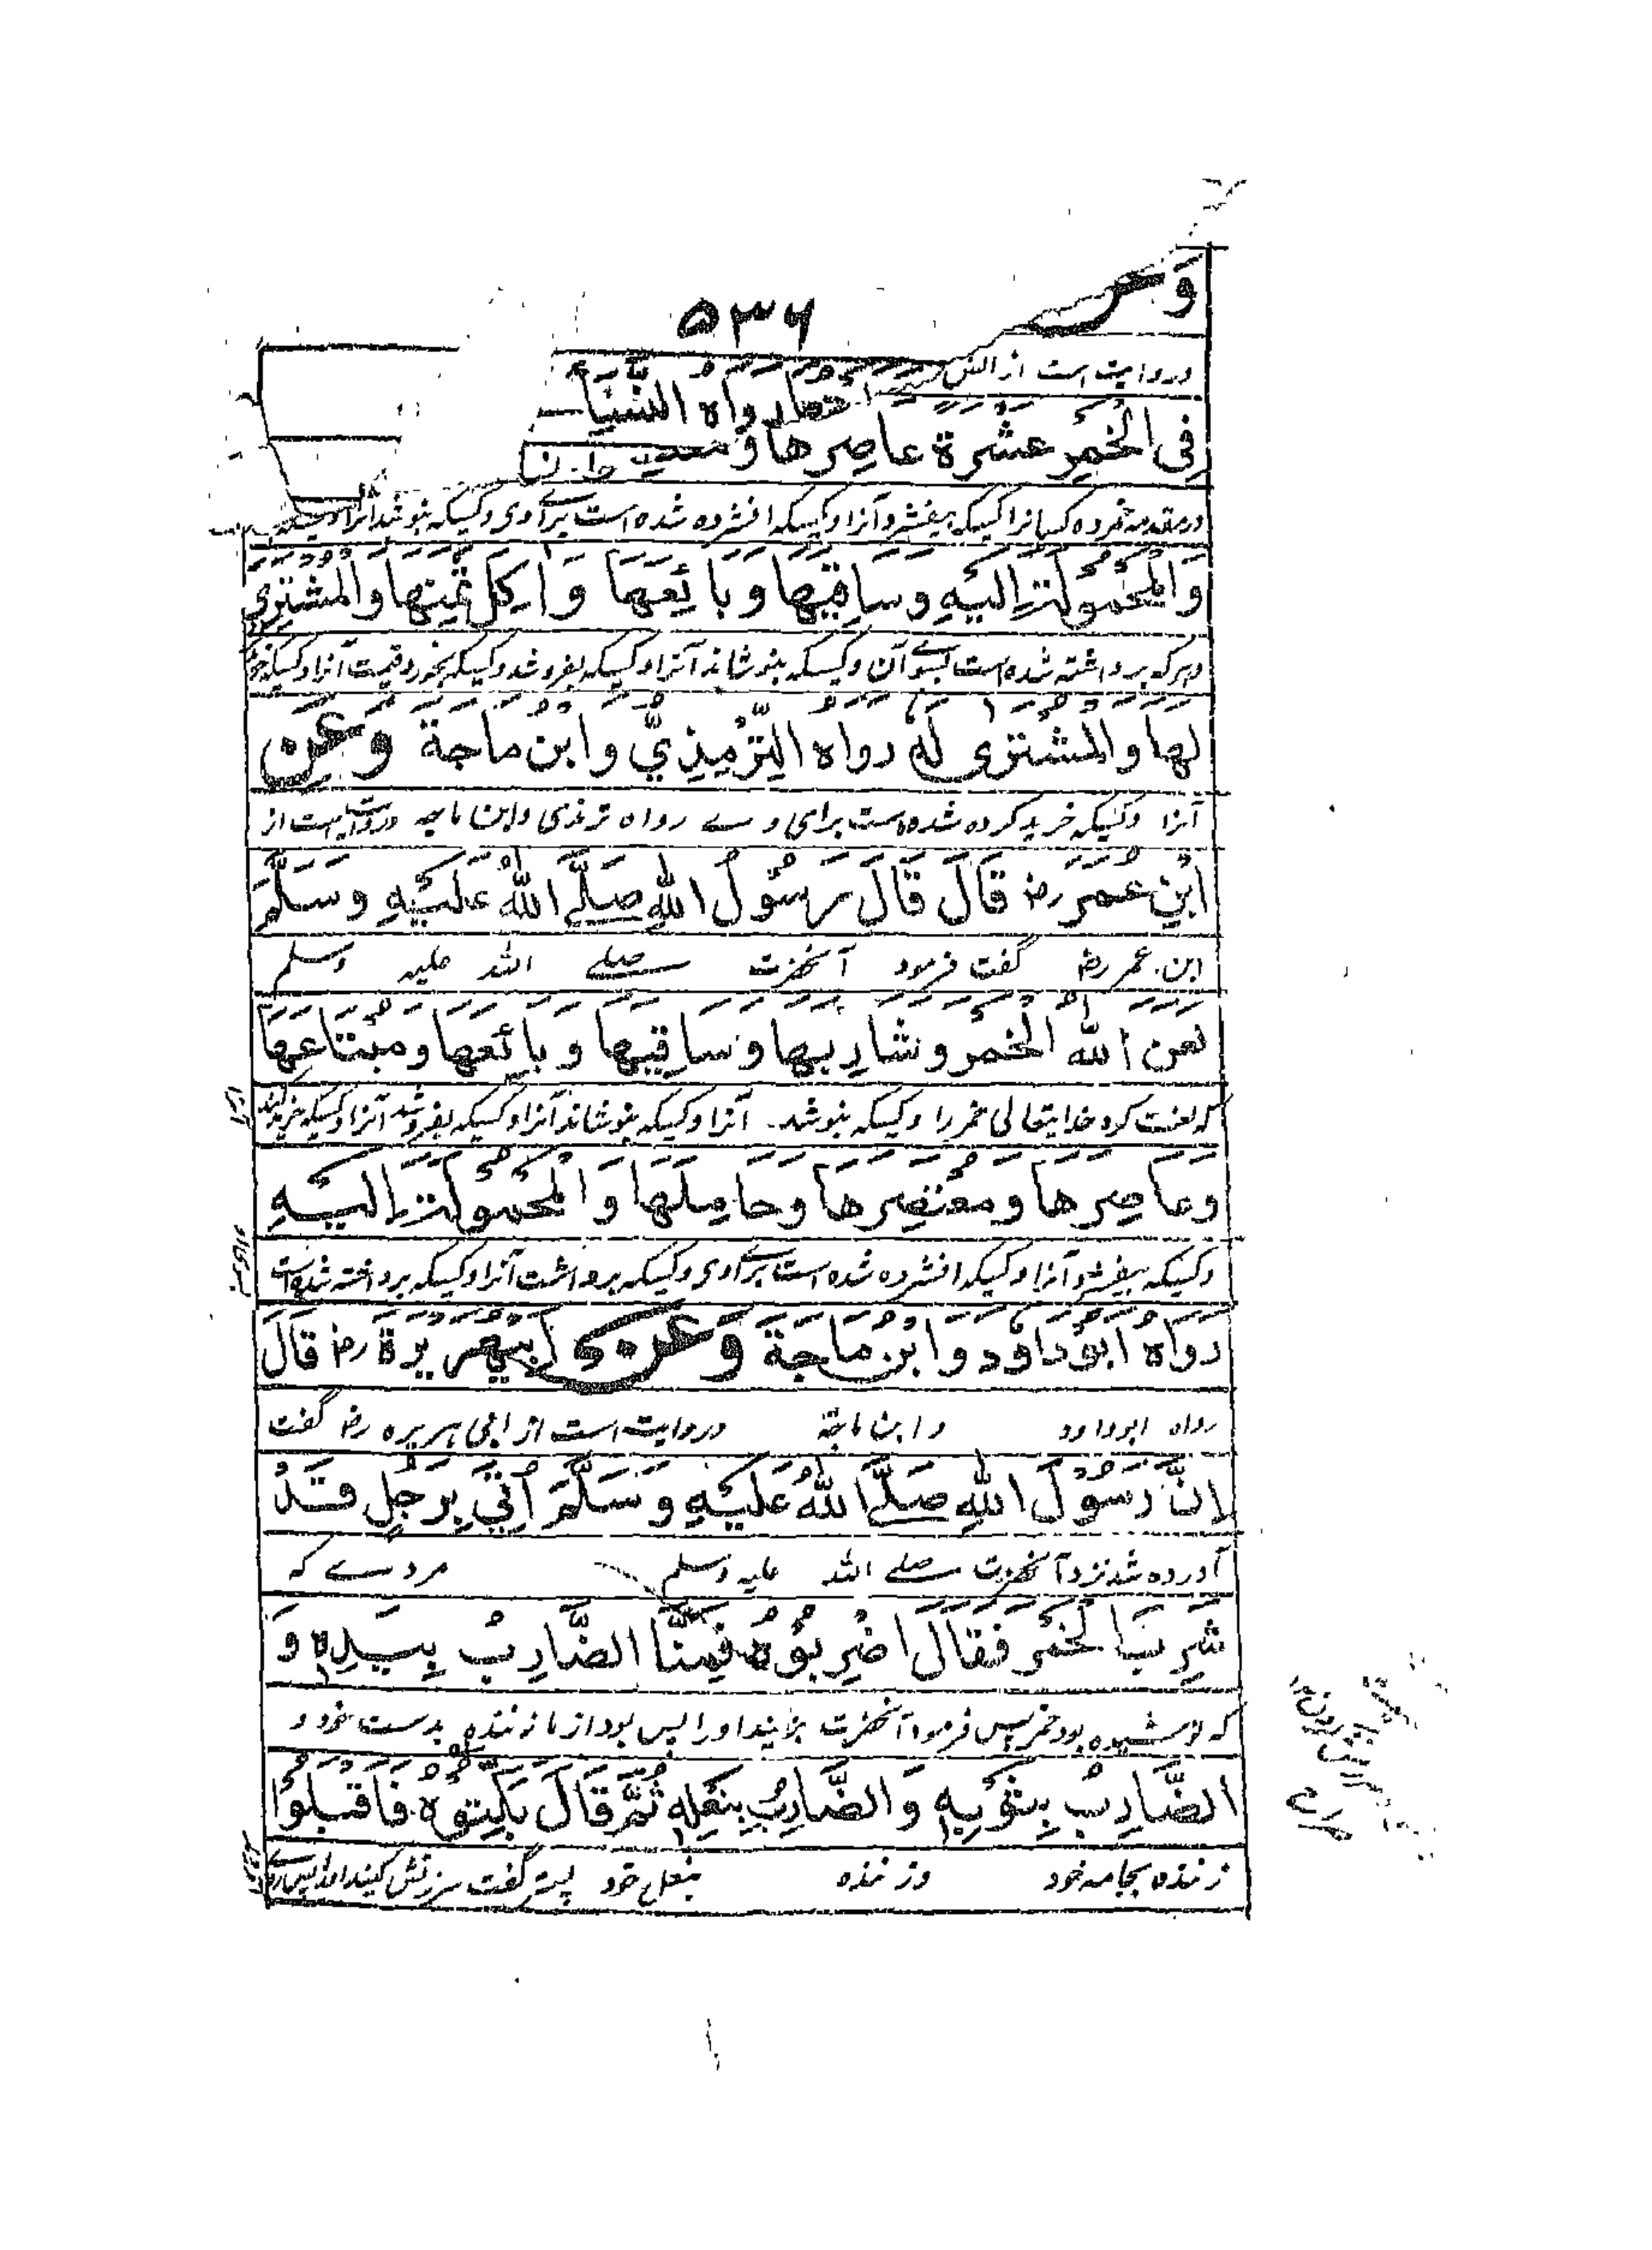 وَعَن
۵۳۶
و روایت است از انس
رواه النسا
فِی الْخَمْرِ عَشَرَة عَاصِرِهَا وَ
در مقدمه خمر ده کسانرا کسیکه بیفشرد آنرا و کسیکه افشرده شده است برائے وی و کسیکه بنوشد آنرا
وَالْمَحْمُوْلَةَ اِلَیْهِ وَ سَاقِیَهَا وَ بَائِعَهَا وَ اٰکِلَ ثَمَنِهَا وَ الْمُشْتَرِیَ
و هر که برداشته شده است بسوے آن و کسیکه بنوشاند آنرا و کسیکه بفروشد و کسیکه بخورد قیمت آنرا و کسیکه
لَهَا وَ الْمُشْتَرٰی لَهُ رَوَاهُ التِّرْمِذِيُّ وَ ابْنُ مَاجَةَ وَعَنِ
آنرا و کسیکه خرید کرده شده است برای وے رواه ترمذی و ابن ماجه و روایت است از
ابْنِ عُمَرَ رض قَالَ قَالَ رَسُوْلُ اللهِ صَلَّے اللهُ عَلَیْهِ وَسَلَّمَ
ابن عمر رض گفت فرمود آنحضرت صلے الله علیه وسلم
لَعَنَ اللهُ الْخَمْرَ وَ شَارِبَهَا وَ سَاقِیَهَا وَ بَائِعَهَا وَ مُبْتَاعَهَا
که لعنت کرد خدایتعالی خمر را و کسیکه بنوشد آنرا و کسیکه بنوشاند آنرا و کسیکه بفروشد آنرا و کسیکه خرید کند
وَ عَاصِرَهَا وَ مُعْتَصِرَهَا وَ حَامِلَهَا وَ الْمَحْمُوْلَةَ اِلَیْهِ
و کسیکه بیفشرد آنرا و کسیکه افشرده شده است برائے وی و کسیکه برداشت آنرا و کسیکه برداشته شده است
رَوَاهُ اَبُوْ دَاوٗدَ وَ ابْنُ مَاجَةَ وَعَنْ اَبِیْ هُرَیْرَةَ رض قَالَ
رواه ابوداود و ابن ماجة و روایت است از ابی هریره رض گفت
اِنَّ رَسُوْلَ اللهِ صَلَّے اللهُ عَلَیْهِ وَ سَلَّمَ اُتِيَ بِرَجُلٍ قَدْ
آورده شد نزد آنحضرت صلے الله علیه وسلم مردے که
شَرِبَ الْخَمْرَ فَقَالَ اضْرِبُوْهُ فَمِنَّا الضَّارِبُ بِیَدِهٖ وَ
که نوشیده بود خمر پس فرمود آنحضرت بزنید او را پس بود از ما زننده بدست خود و
الضَّارِبُ بِثَوْبِهٖ وَ الضَّارِبُ بِنَعْلِهٖ ثُمَّ قَالَ بَکِّتُوْهُ فَاَقْبَلُوْا
زننده بجامه خود و زننده بنعل خود پستر گفت سرزنش کنید او را